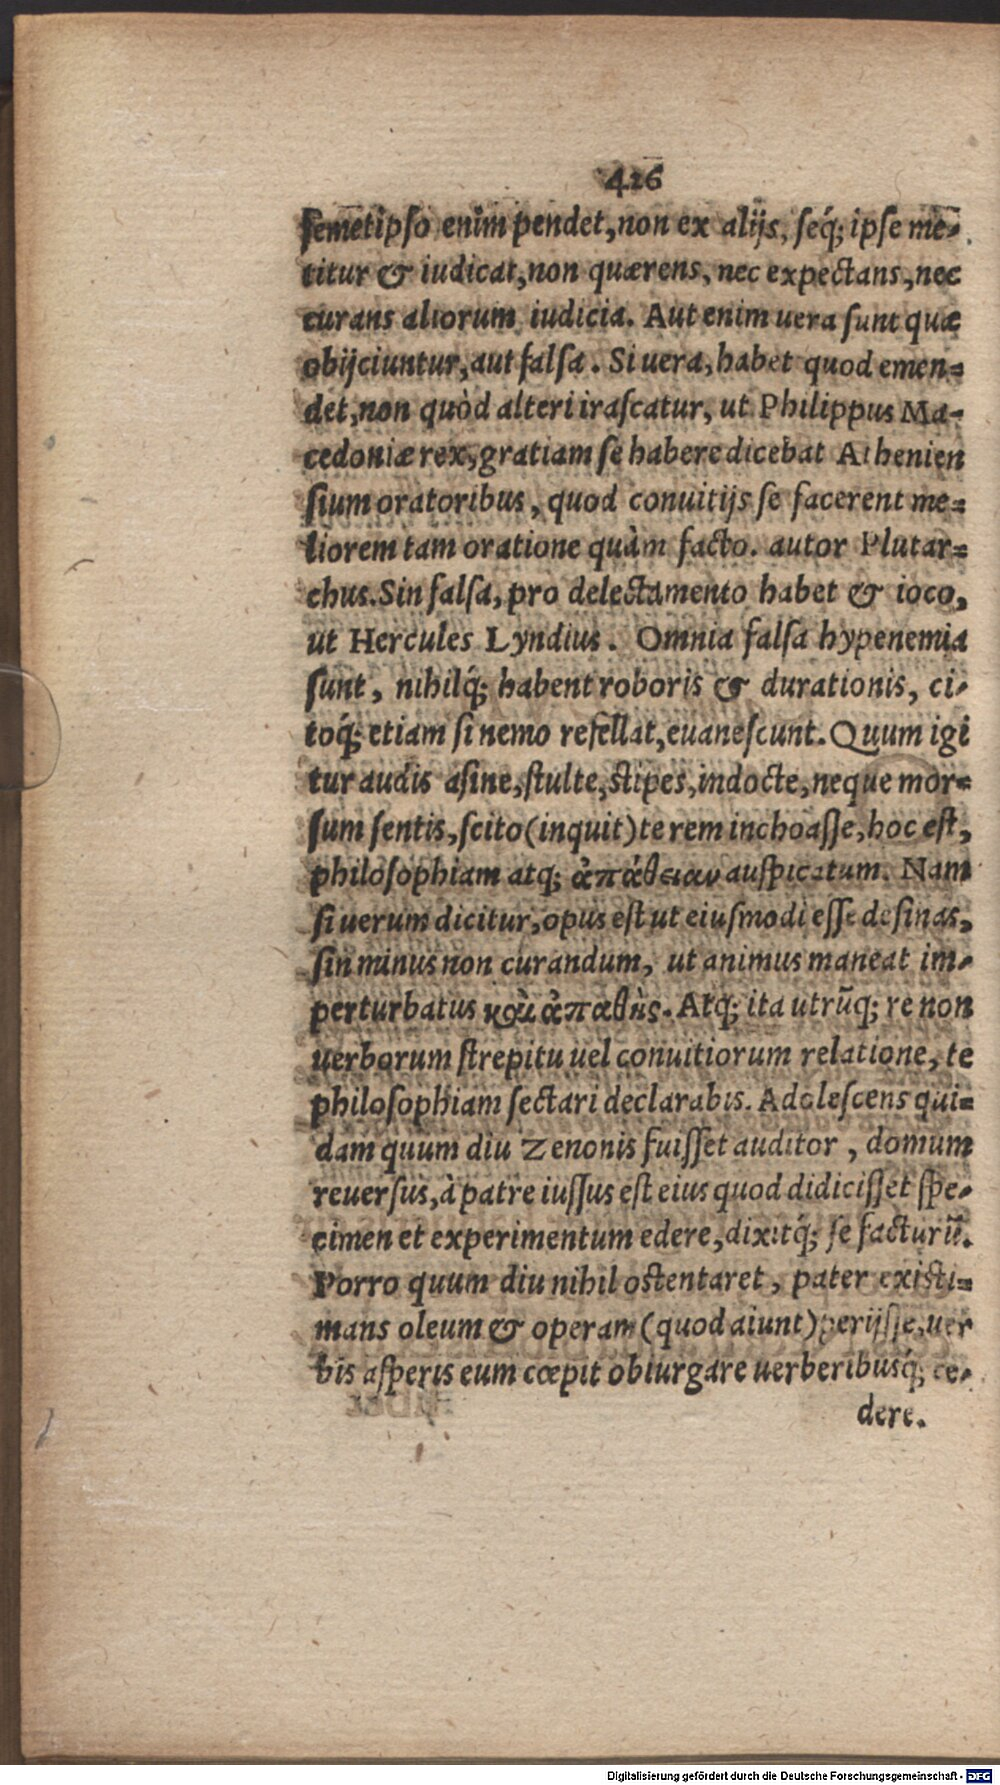 426
ſemetipſo enim pendet, non ex alijs, ſeq́; ipſe me-
titur & iudicat, non quærens, nec expectans, nec
curans aliorum iudicia. Aut enim uera ſunt quæ
obijciuntur, aut falſa. Si uera, habet quod emen-
det, non quòd alteri iraſcatur, ut Philippus Ma-
cedoniæ rex, gratiam ſe habere dicebat Athenien
ſium oratoribus, quod conuitijs ſe facerent me-
liorem tam oratione quàm facto. autor Plutar-
chus. Sin falſa, pro delectamento habet & ioco,
ut Hercules Lyndius. Omnia falſa hypenemia
ſunt, nihilq́; habent roboris & durationis, ci-
toq́; etiam ſi nemo refellat, euaneſcunt. Quum igi
tur audis aſine, ſtulte, ſtipes, indocte, neque mor-
ſum ſentis, ſcito (inquit) te rem inchoaſſe, hoc eſt,
philoſophiam atq; ἀπάθειαν auſpicatum. Nam
ſi uerum dicitur, opus eſt ut eiuſmodi eſſe deſinas,
ſin minus non curandum, ut animus maneat im-
perturbatus καὶ ἀπαθὴς. Atq; ita utrūq; re non
uerborum ſtrepitu uel conuitiorum relatione, te
philoſophiam ſectari declarabis. Adoleſcens qui-
dam quum diu Zenonis fuiſſet auditor, domum
reuerſus, à patre iuſſus eſt eius quod didiciſſet ſpe-
cimen et experimentum edere, dixitq́; ſe facturū.
Porro quum diu nihil oſtentaret, pater exiſti-
mans oleum & operam (quod aiunt) perijſſe, uer
bis aſperis eum cœpit obiurgare uerberibusq́; ce-
dere.
Digitalisierung gefördert durch die Deutsche Forschungsgemeinschaft - DFG